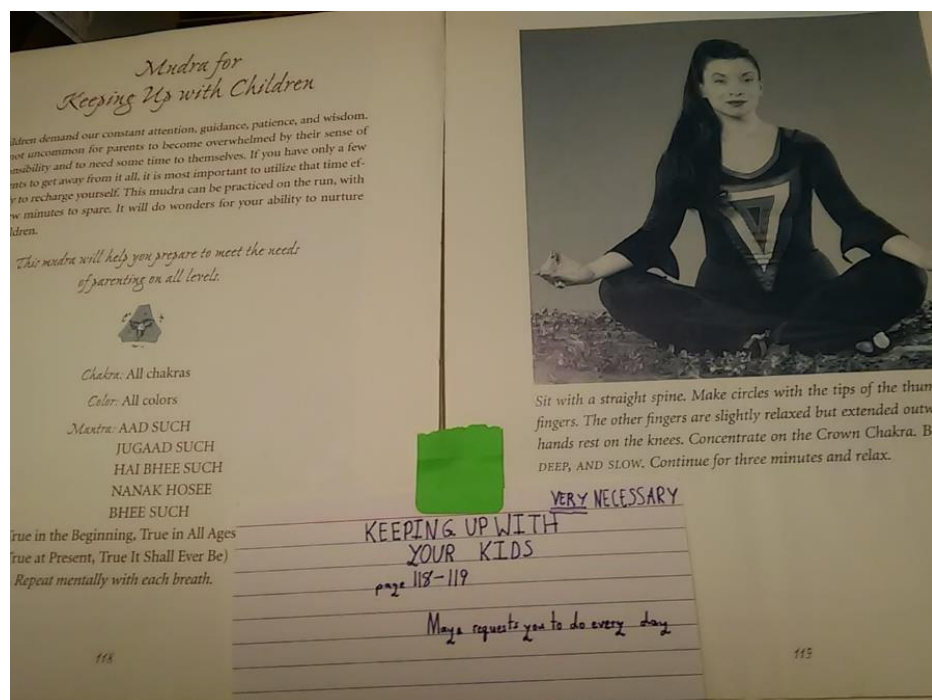 Mudra for
Keeping Up with Children
ldren demand our constant attention, guidance, patience, and wisdom.
not uncommon for parents to become overwhelmed by their sense of
nsibility and to need some time to themselves. If you have only a few
nts to get away from it all, it is most important to utilize that time ef-
y to recharge yourself. This mudra can be practiced on the run, with
w minutes to spare. It will do wonders for your ability to nurture
ldren.
This mudra will help you prepare to meet the needs
of parenting on all levels.
Chakra: All chakras
Color: All colors
Mantra: AAD SUCH
JUGAAD SUCH
HAI BHEE SUCH
NANAK HOSEE
BHEE SUCH
rue in the Beginning, True in All Ages
rue at Present, True It Shall Ever Be)
Repeat mentally with each breath.
118
Sit with a straight spine. Make circles with the tips of the thum
fingers. The other fingers are slightly relaxed but extended outw
hands rest on the knees. Concentrate on the Crown Chakra. B
DEEP, AND SLOW. Continue for three minutes and relax.
119
VERY NECESSARY
KEEPING UP WITH
YOUR KIDS
page 118-119
Maya requests you to do every day